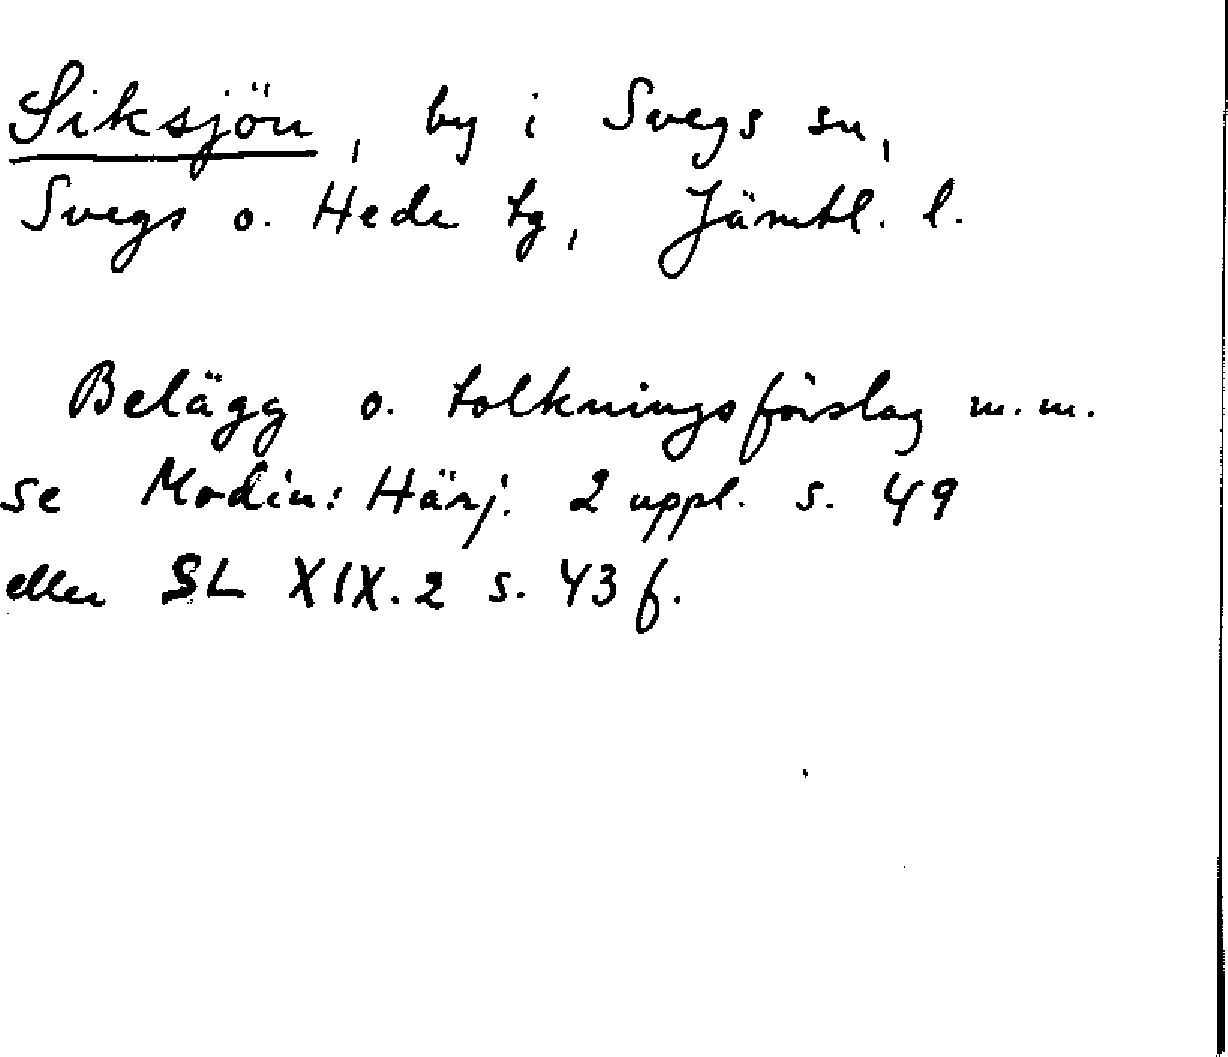 Siksjön, by i Svegs sn,
Svegs o. Hede tg, Jämtl. l.
Belägg o. tolkningsförslag m.m.
se Modin: Härj. 2 uppl. s. 49
eller SL XIX.2 s. 43 f.